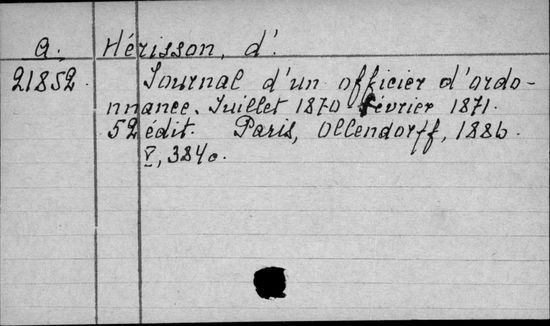 A. Hérisson, d'.
21852. Journal d'un officier d'ordo-
nnance. Juillet 1870 février 1871.
52 édit. Paris, Ollendorff, 1886.
V, 384 c.